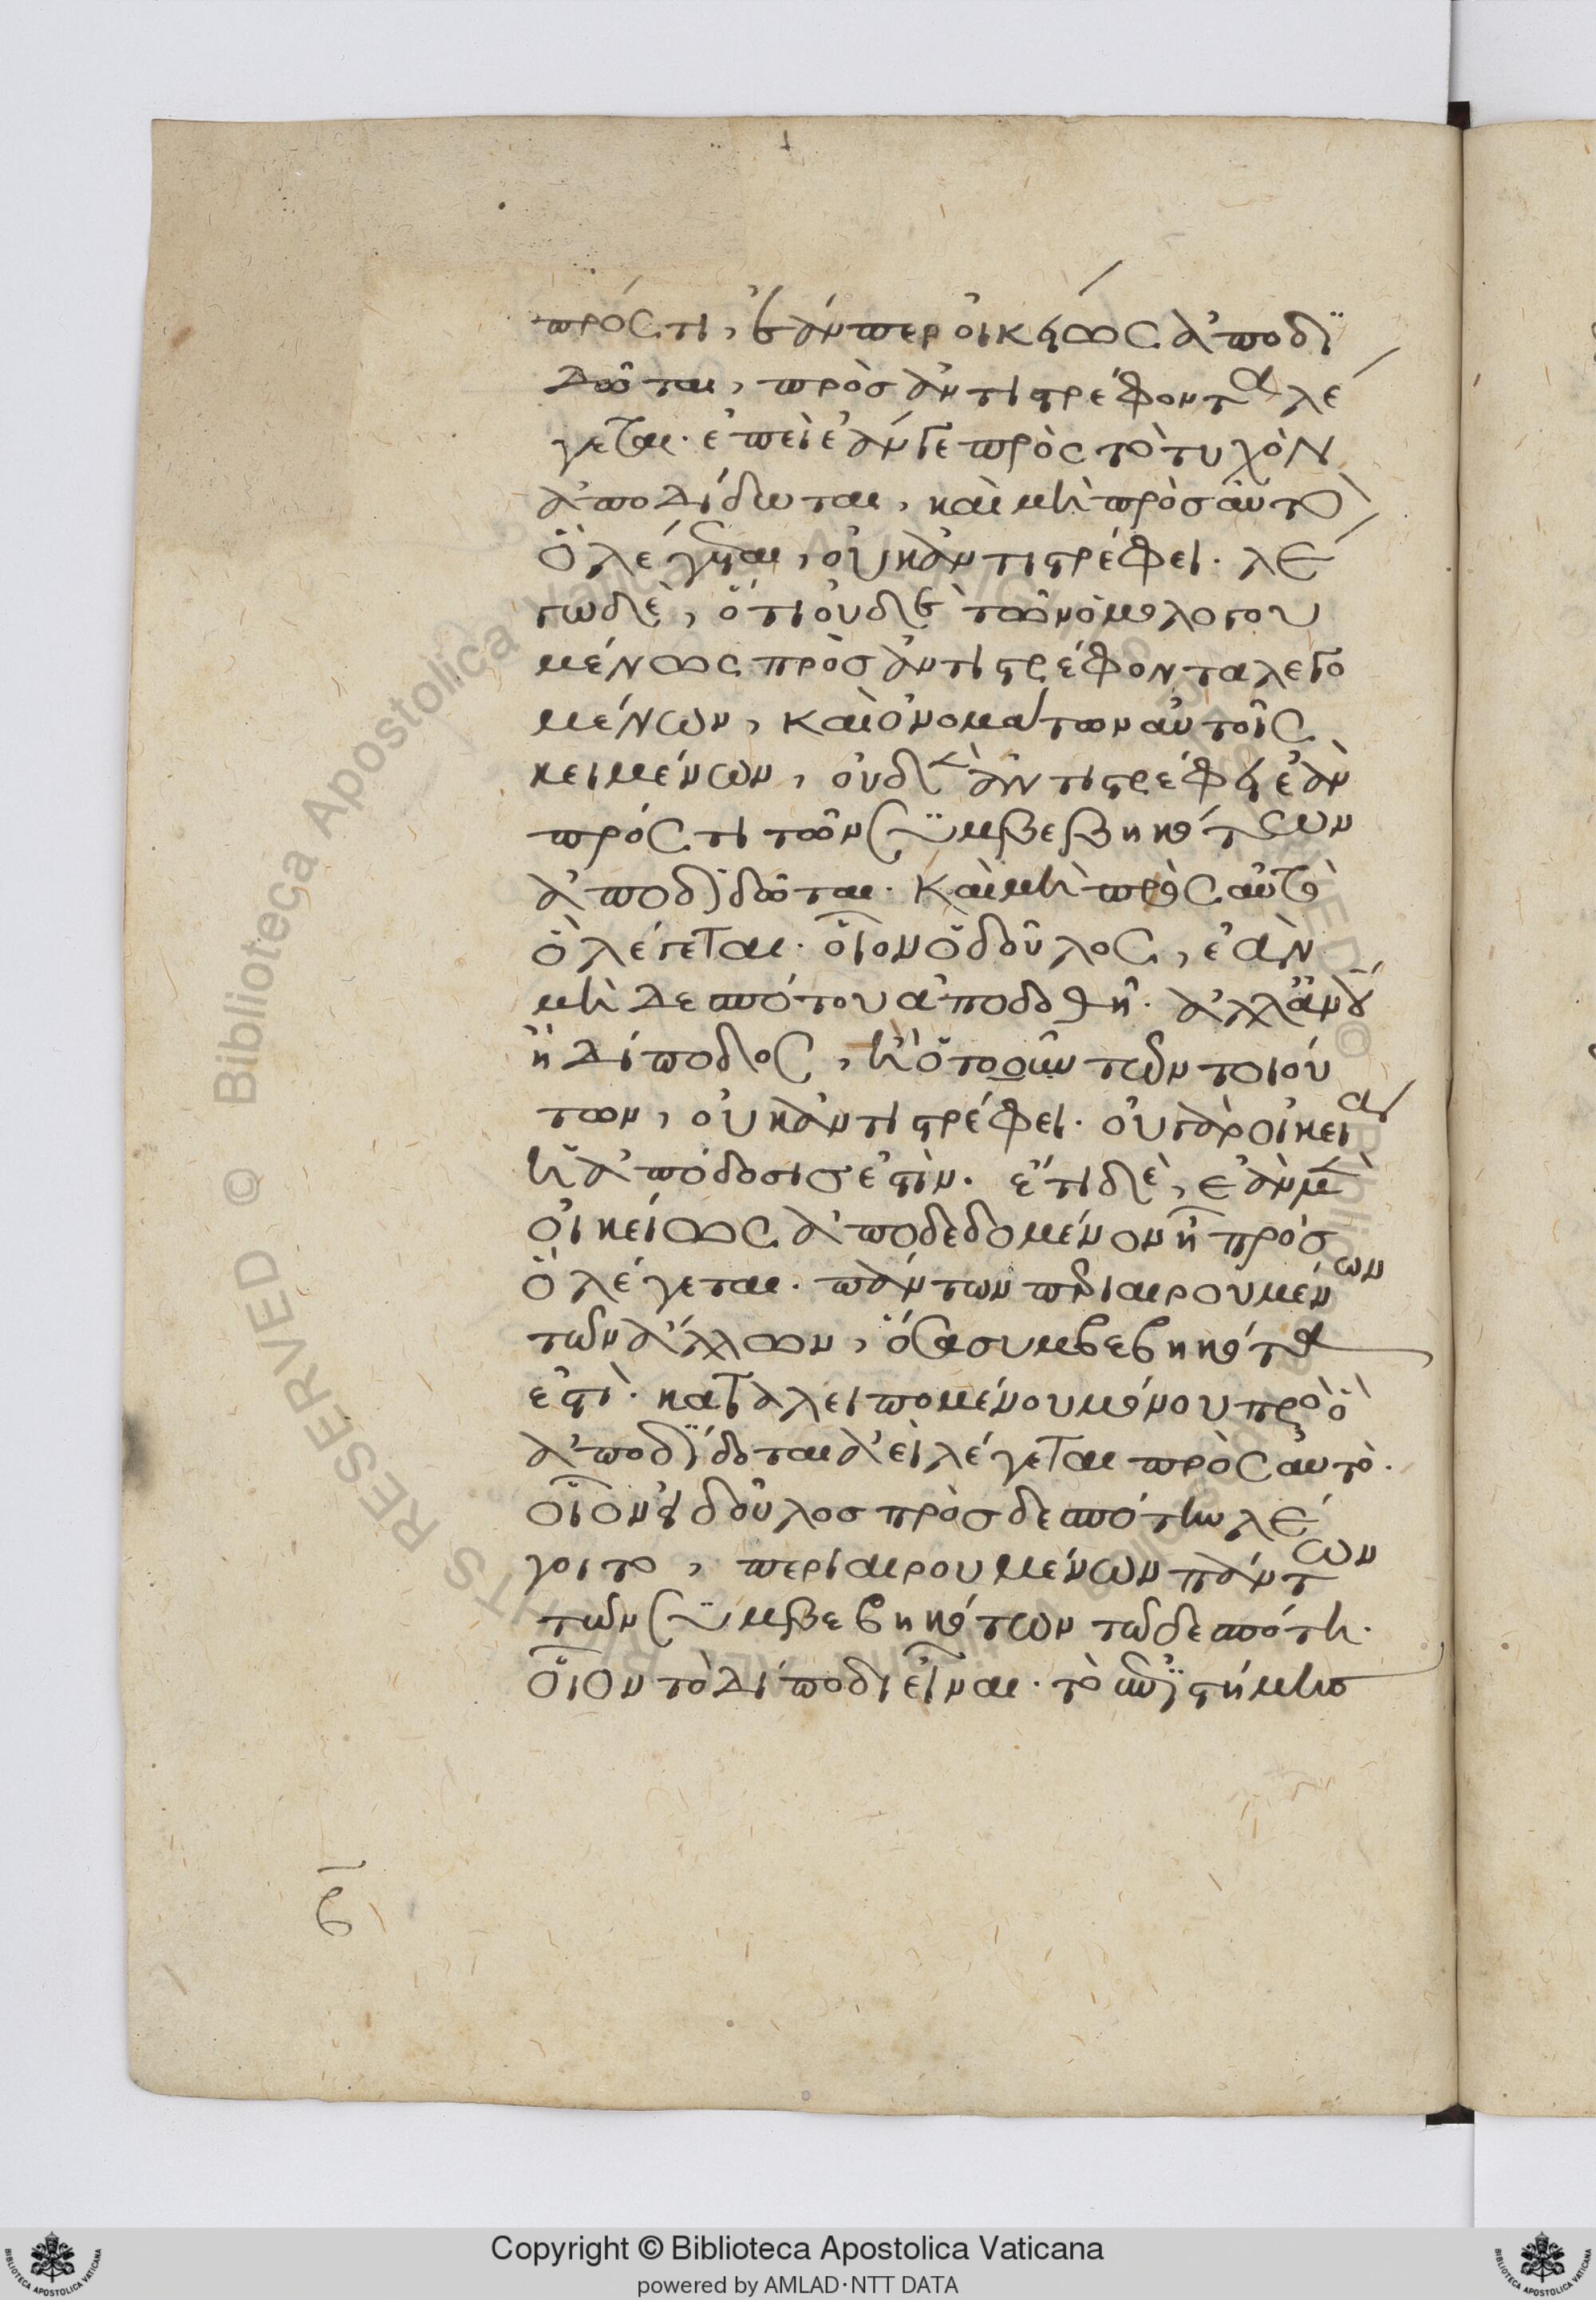 πρός τι, ἐάνπερ οἰκείως ἀποδι
δῶται, πρὸς ἀντιστρέφοντα λέ
γεται. ἐπεὶ ἐάν γε πρὸς τὸ τυχὸν
ἀποδίδωται, καὶ μὴ πρὸς αὐτὸ
ὃ λέγεται, οὐκ ἀντιστρέφει. λέ
γω δὲ, ὅτι οὐδὲ τῶν ὁμολογου
μένως πρὸς ἀντιστρέφοντα λεγο
μένων, καὶ ὀνομάτων αὐτοῖς
κειμένων, οὐδὲν ἀντιστρέφει ἐὰν
πρός τι τῶν συμβεβηκότων
ἀποδιδῶται. καὶ μὴ πρὸς αὐτὸ
ὃ λέγεται. οἷον ὁ δοῦλος, ἐὰν
μὴ δεσπότου ἀποδοθῆ. ἀλλ' ἀνου
ἢ δίποδος, ἢ ὁτοοῦν τῶν τοιού
των, οὐκ ἀντιστρέφει. οὐ γὰρ οἰκεία
ἡ ἀπόδοσις ἐστὶν. ἔτι δὲ, ἐὰν μὲν
οἰκείως ἀποδεδομένον ἦ πρὸς
ὃ λέγεται. πάντων περιαιρουμένων
τῶν ἄλλων, ὅσα συμβεβηκότα
ἐστὶ. καταλειπομένου μόνου πρὸς ὃ
ἀποδίδοται ἀεὶ λέγεται πρὸς αὐτὸ.
οἷον εἰ δοῦλος πρὸς δεσπότην λέ
γοιτο, περιαιρουμένων πάντων
τῶν συμβεβηκότων τῶ δεσπότη.
οἷον τὸ δίποδι εἶναι. τὸ ἐπιστήμης
β
Copyright © Biblioteca Apostolica Vaticana
powered by AMLAD·NTT DATA